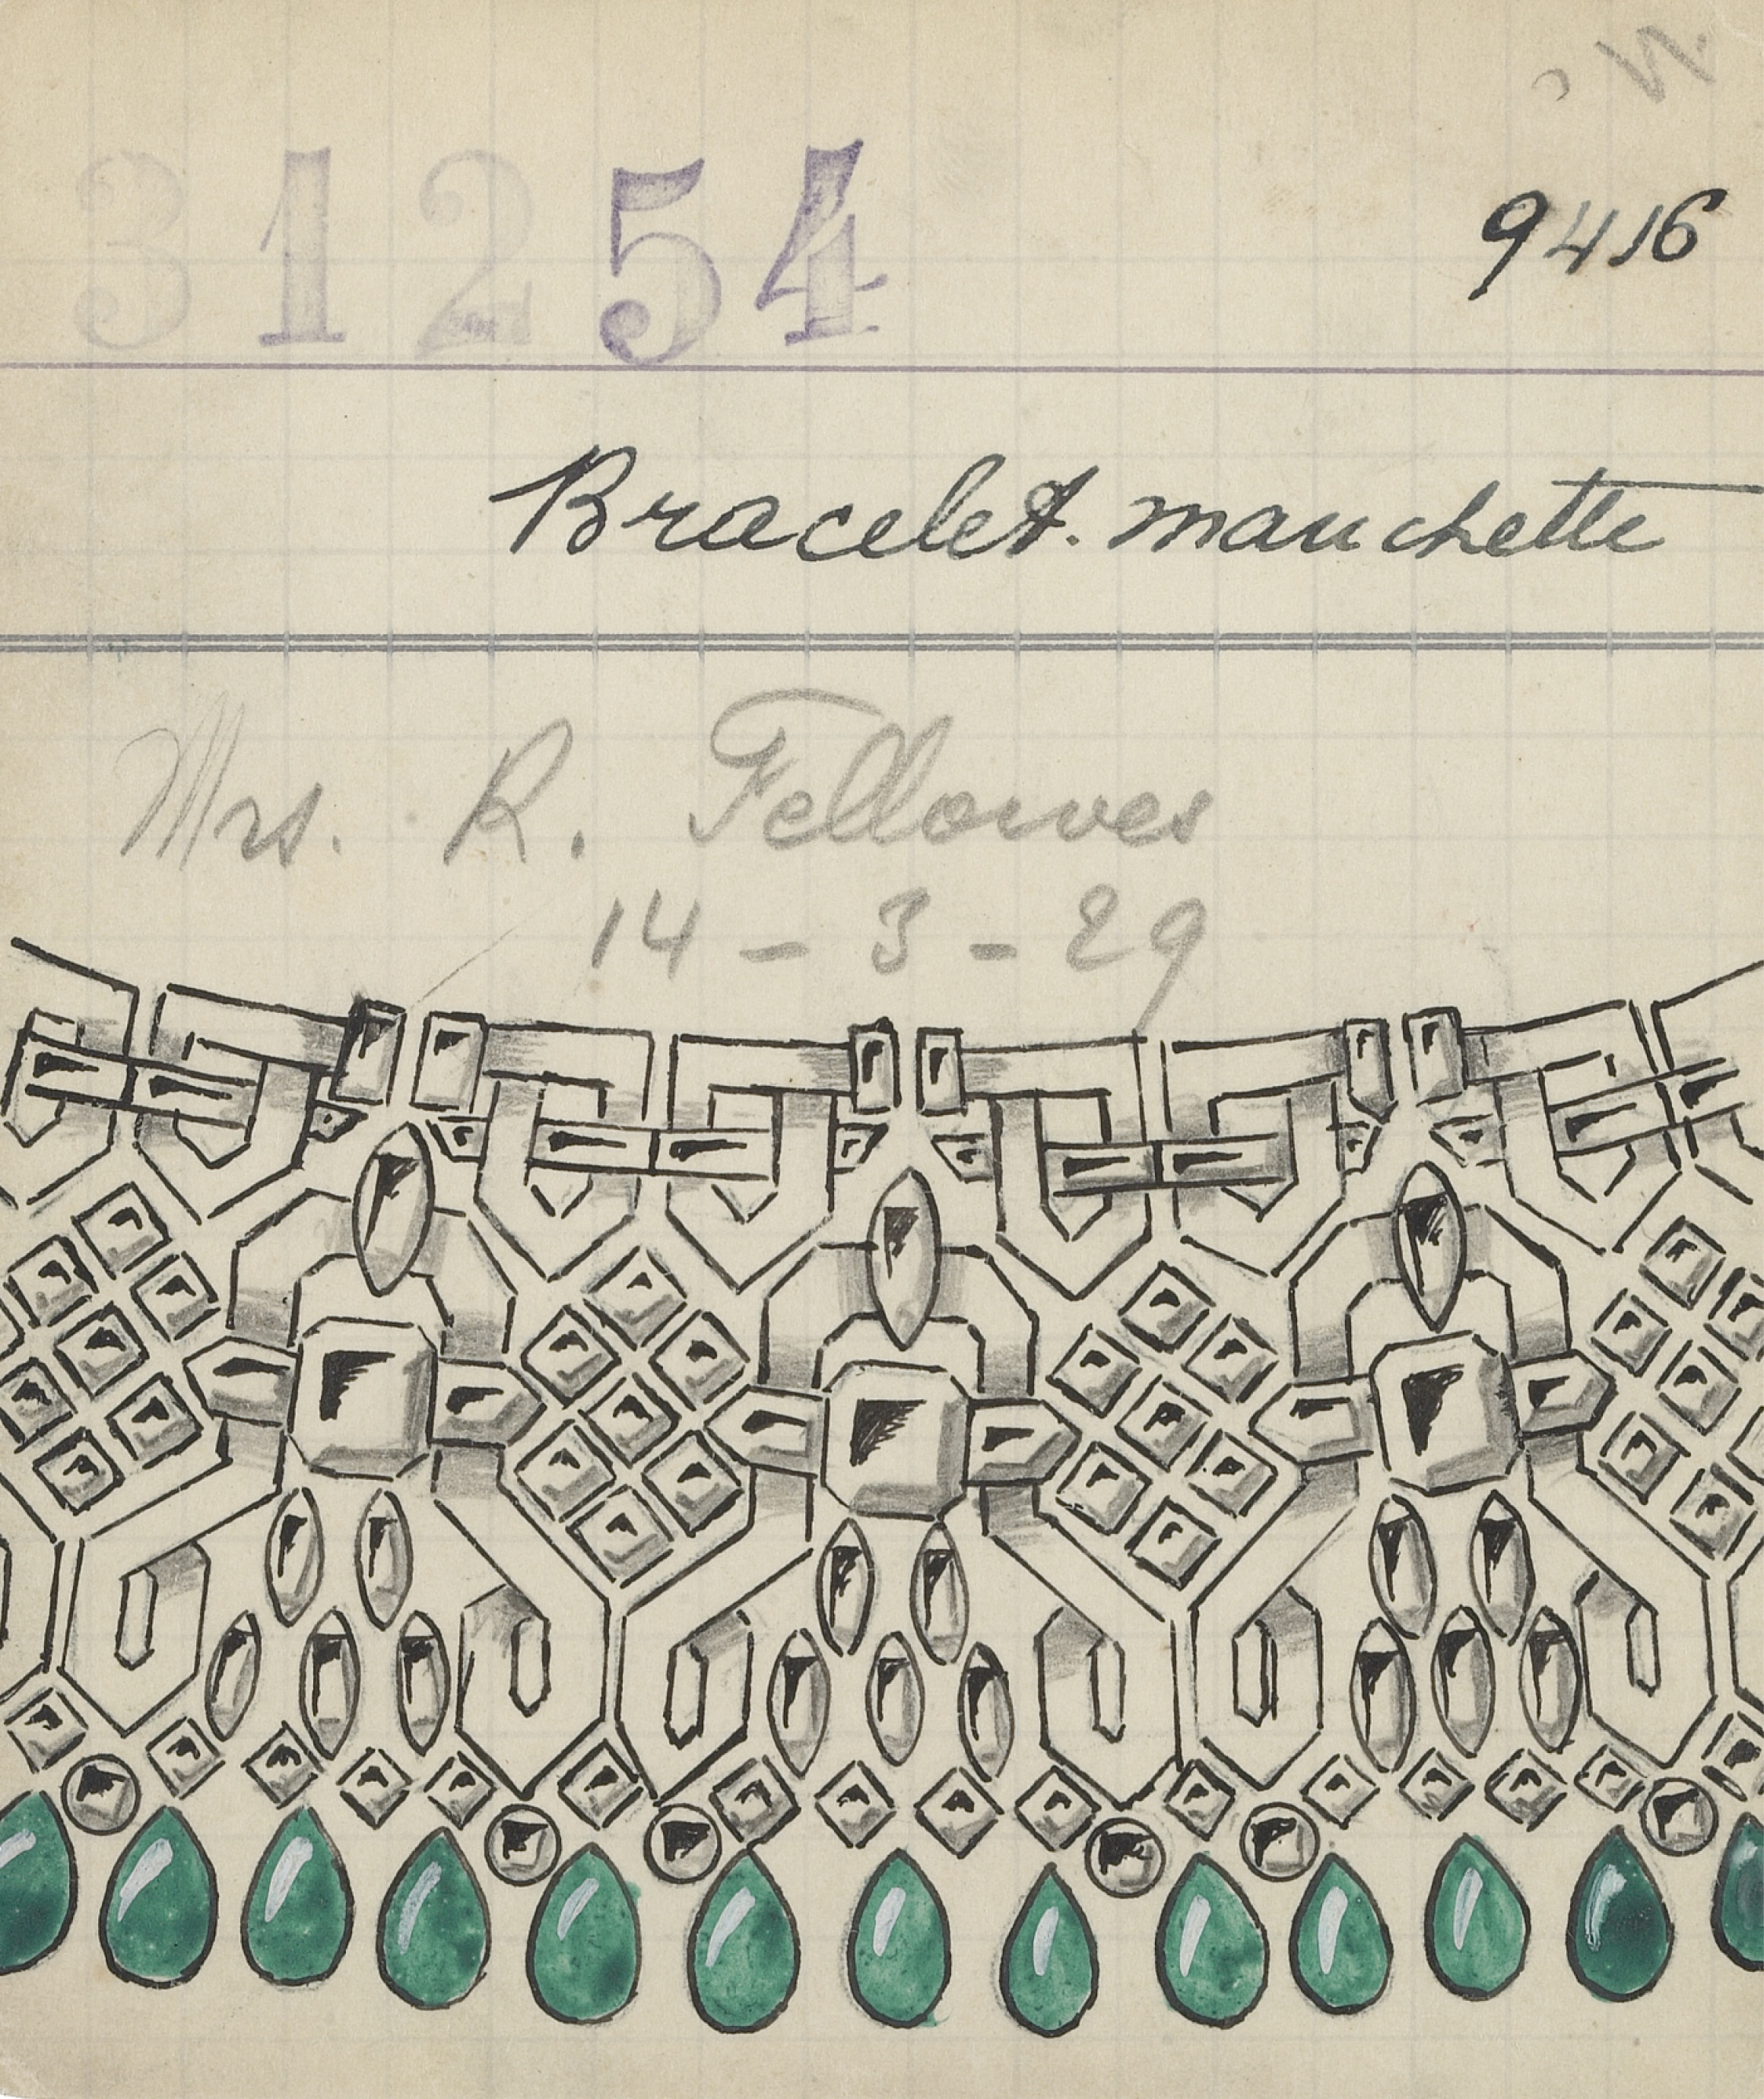 31254
9416
Bracelet. manchette
Mrs. R. Fellowes
14 - 3 - 29